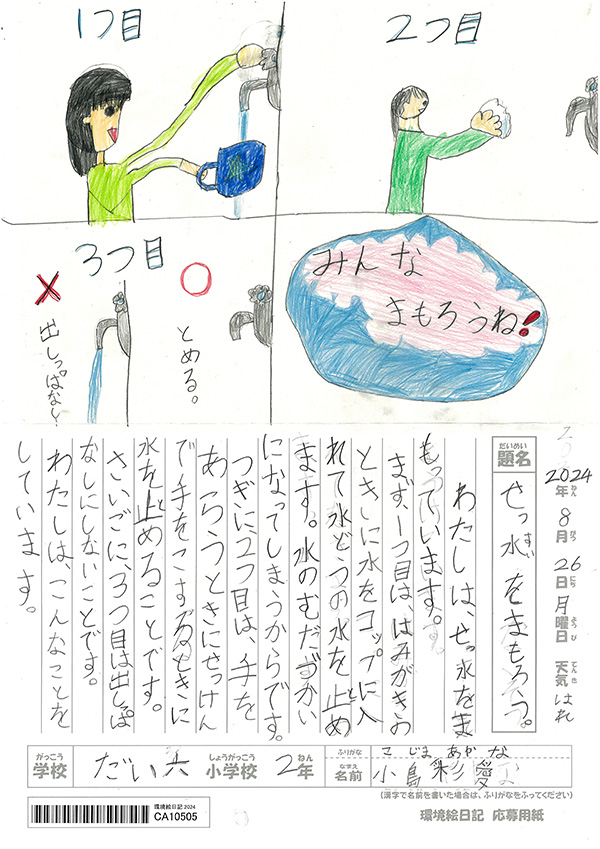 1つ目
2つ目
3つ目
出しっぱなし
とめる。
みんな
まもろうね!
2024年 8月 26日 月曜日 天気 はれ
ねん がつ にち ようび てんき
だいめい
題名
せっ水をまもろう。
すい
わたしは、せっ水をま
もっています。
まず、一つ目は、はみがきの
ときに水をコップに入
れて水どうの水を止め
ます。水のむだづかい
になってしまうからです。
つぎに、2つ目は、手を
あらうときにせっけん
で手をこするときに
水を止めることです。
さいごに、3つ目は出しっぱ
なしにしないことです。
わたしは、こんなことを
しています。
がっこう しょうがっこう ねん
学校 だい六 小学校 2年
ふりがな こじまあかな
なまえ
名前 小島彩愛
(漢字で名前を書いた場合は、ふりがなをふってください)
環境絵日記 2024
CA10505
環境絵日記 応募用紙